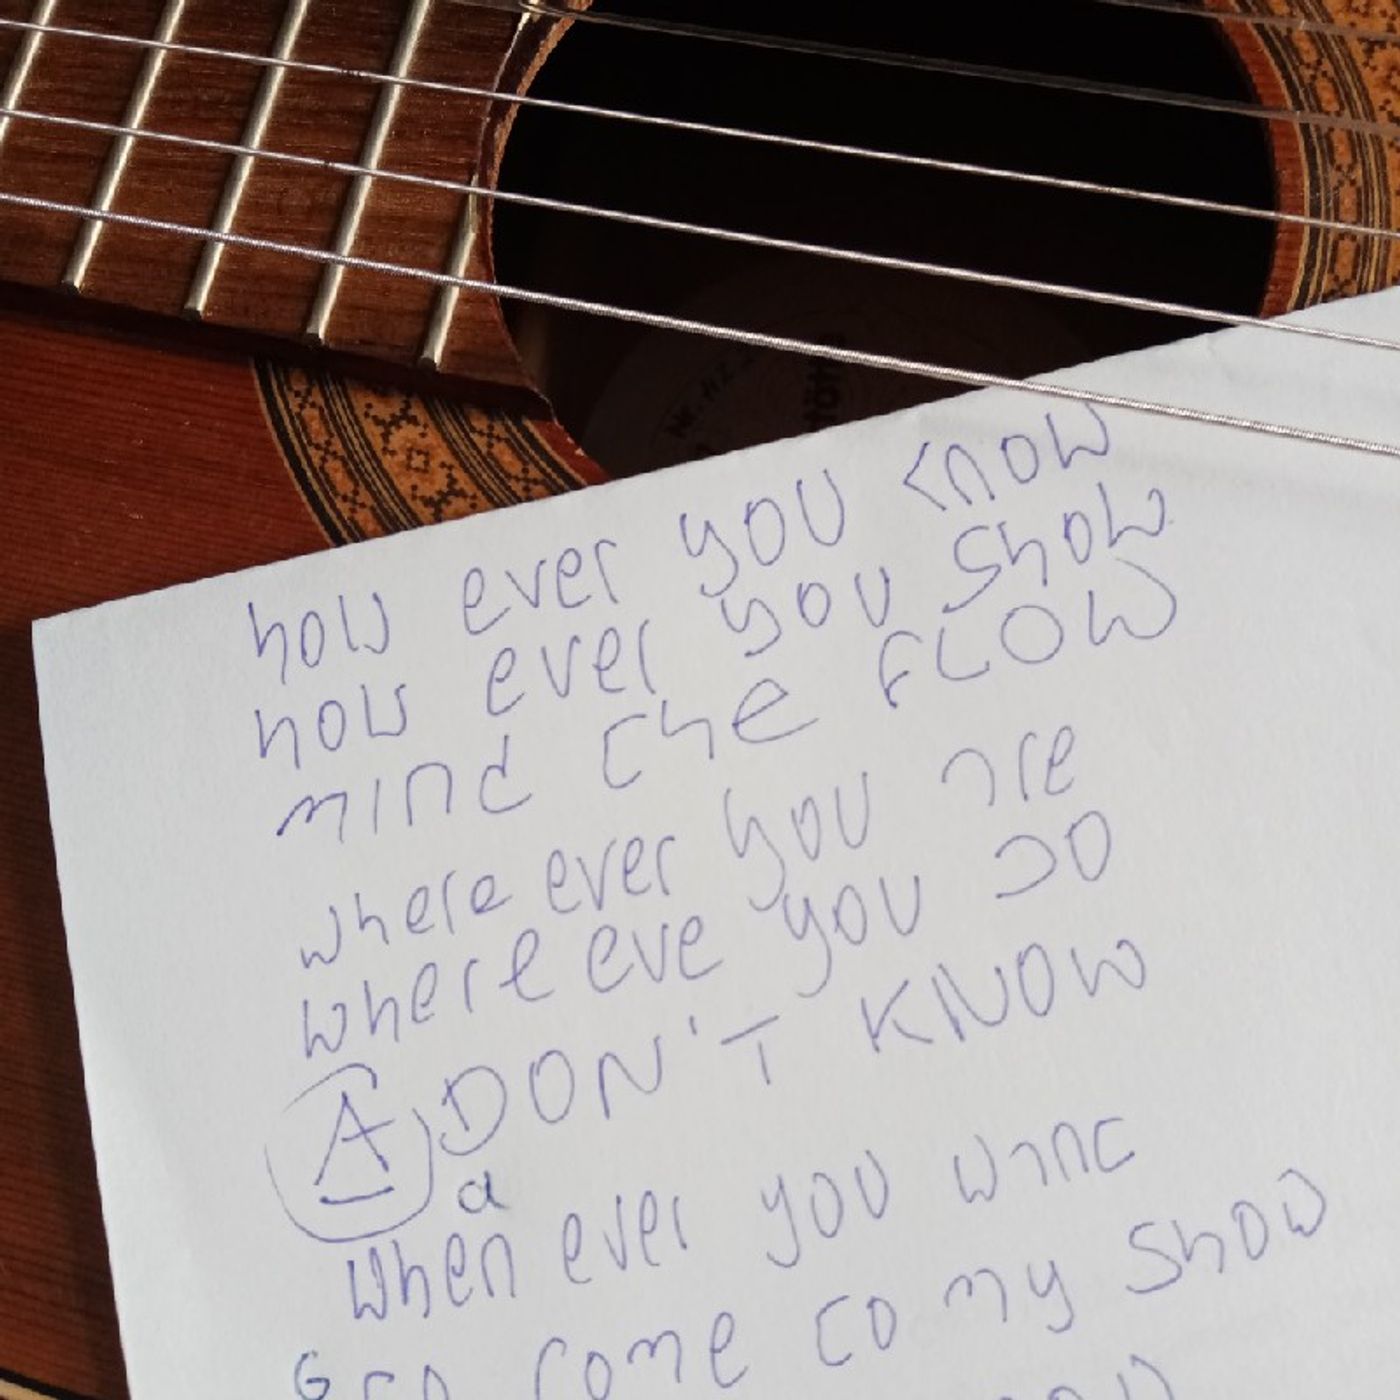 how ever you know
how ever you show
mind the FLOW
where ever you are
where eve you DO
A DON'T KNOW
a
when ever you want
come to my show